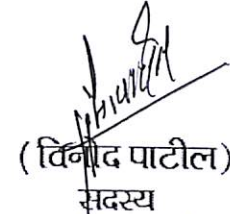 ( विनोद पाटील)
सदस्य